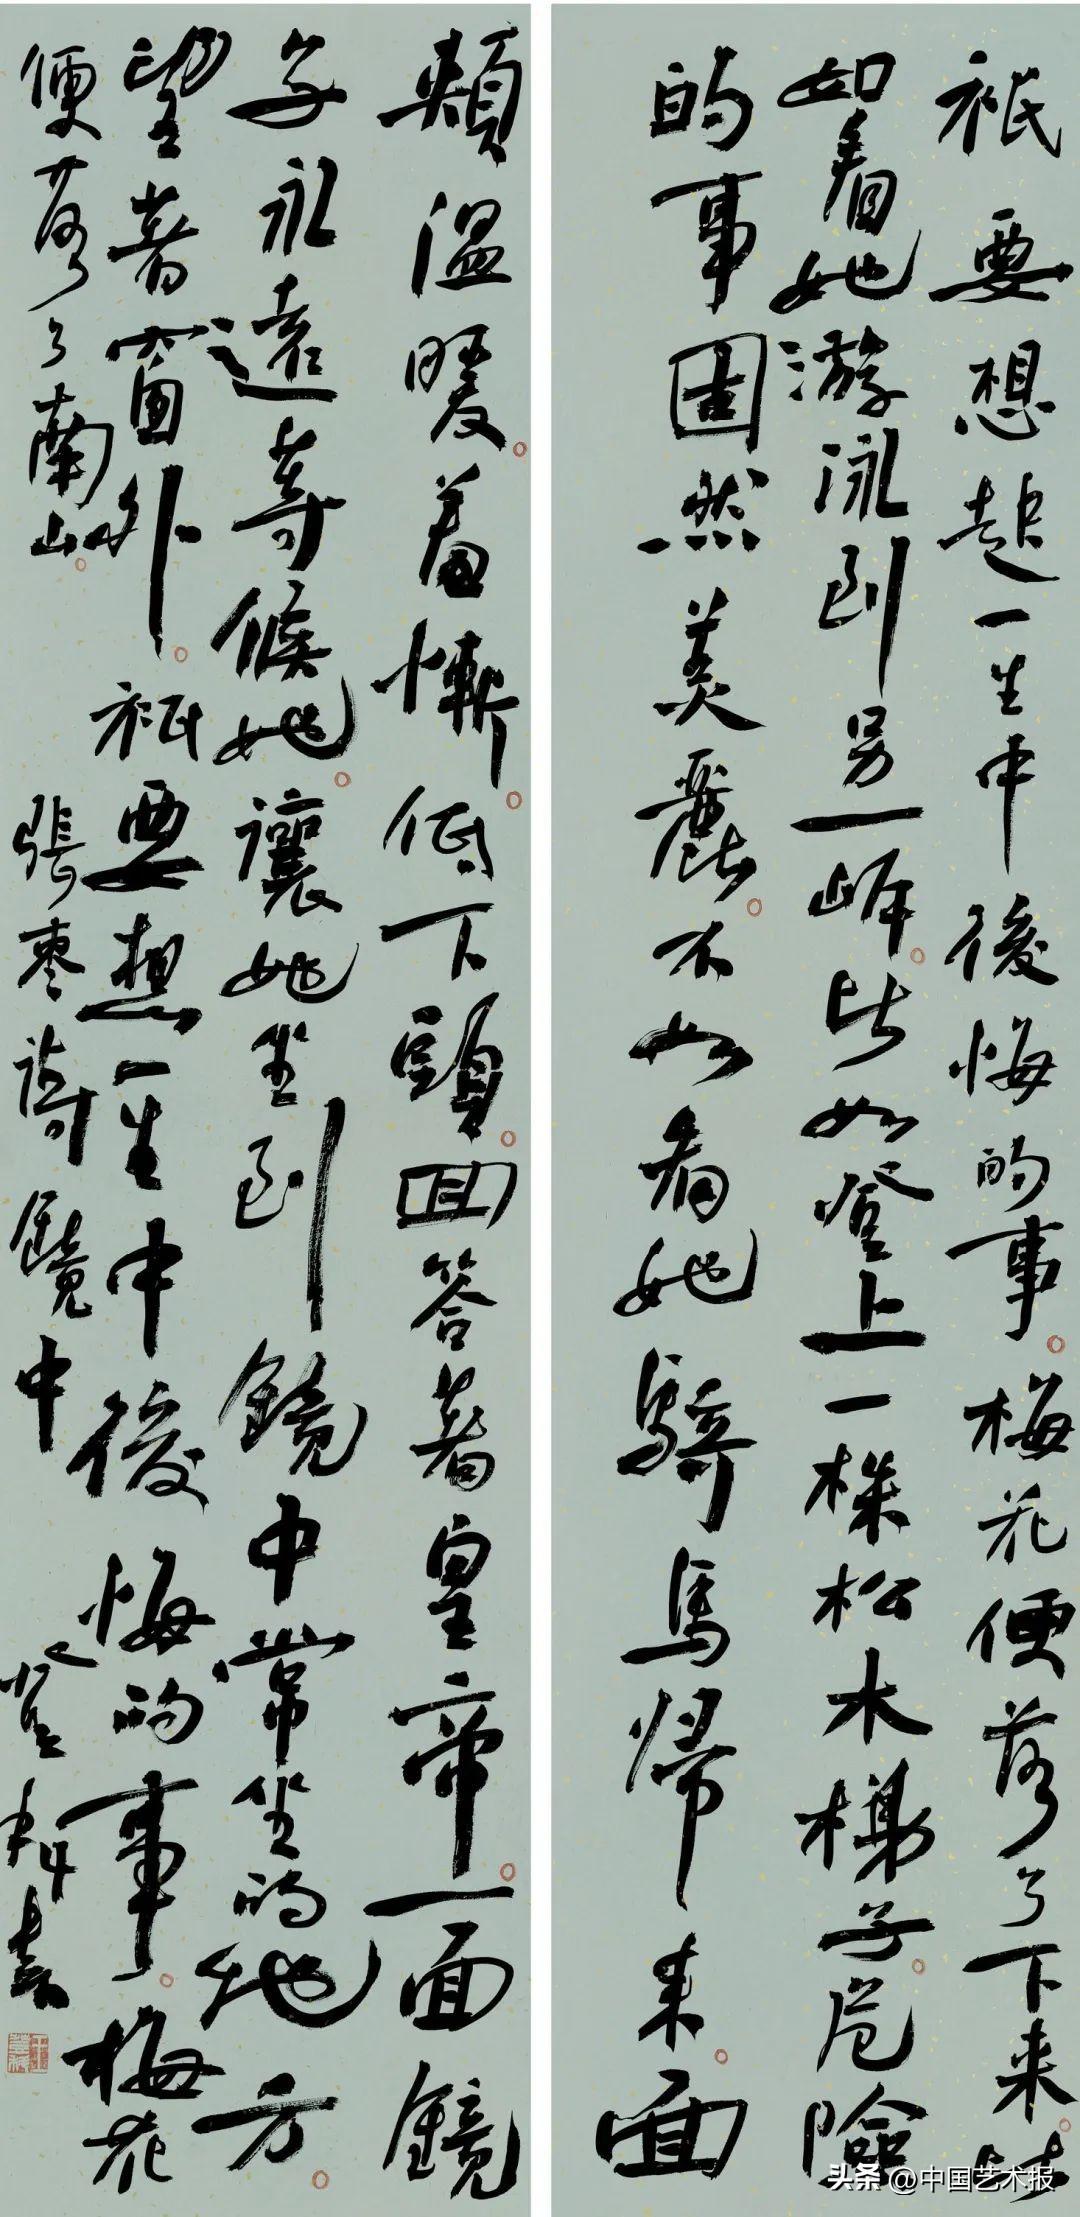 祇要想起一生中後悔的事梅花便落了下来比
如看她游泳到另一岸比如登上一株松木梯子危險
的事固然美麗不如看她騎馬歸来面
頰溫暖羞慚低下頭回答著皇帝一面鏡
子永遠等候她讓她坐到鏡中常坐的地方
望著窗外祇要想一生中後悔的事梅花
便落了南山 張枣詩鏡中 登科書
头条 @中国艺术报